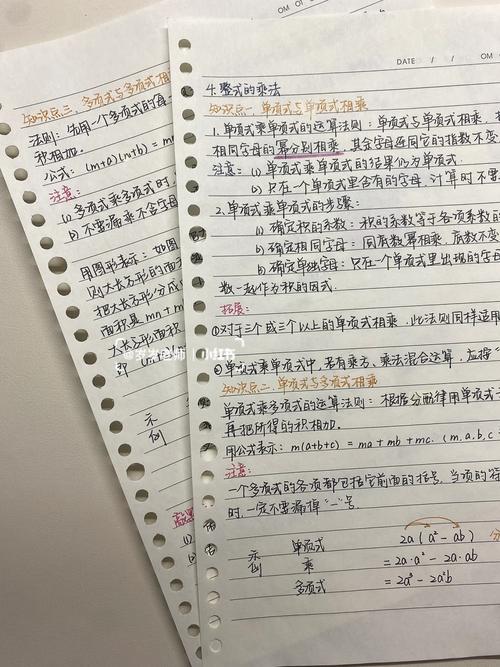 DATE: / /
OM
4.整式的乘法
知识点一 单项式与单项式相乘
1.单项式乘单项式的运算法则:单项式与单项式相乘,
相同字母的幂分别相乘,其余字母连同它的指数不变
注意:(1)单项式乘单项式的结果仍为单项式.
(2)只在一个单项式里含有的字母,计算时不要
2.单项式乘单项式的步骤:
(1)确定积的系数:积的系数等于各项系数的
(2)确定相同字母:同底数幂相乘,底数不变
(3)确定单独字母:只在一个单项式里出现的字母
数一起作为积的因式.
拓展:
①对于三个或三个以上的单项式相乘,此法则同样适用
②单项式乘单项式中,若有乘方、乘法混合运算,应按"
知识点二 单项式与多项式相乘
单项式乘多项式的运算法则:根据分配律用单项式
再把所得的积相加.
用公式表示:m(a+b+c)=ma+mb+mc.(m,a,b,c
注意:
一个多项式的各项都包括它前面的符号,当项的符
时,一定不要漏掉"-"号.
示例
单项式
乘
多项式
2a(a²-ab)
=2a·a²-2a·ab
=2a³-2a²b
知识点三 多项式与多项式相
法则:先用一个多项式的每
积相加.
公式:(m+a)(n+b)=m
注意:
(1)多项式乘多项式时
(2)不要漏乘不含字母
用图形表示:如图
则大长方形的面
把大长方形分成
面积是mn+m
大长方形面积
即
示例
小红书